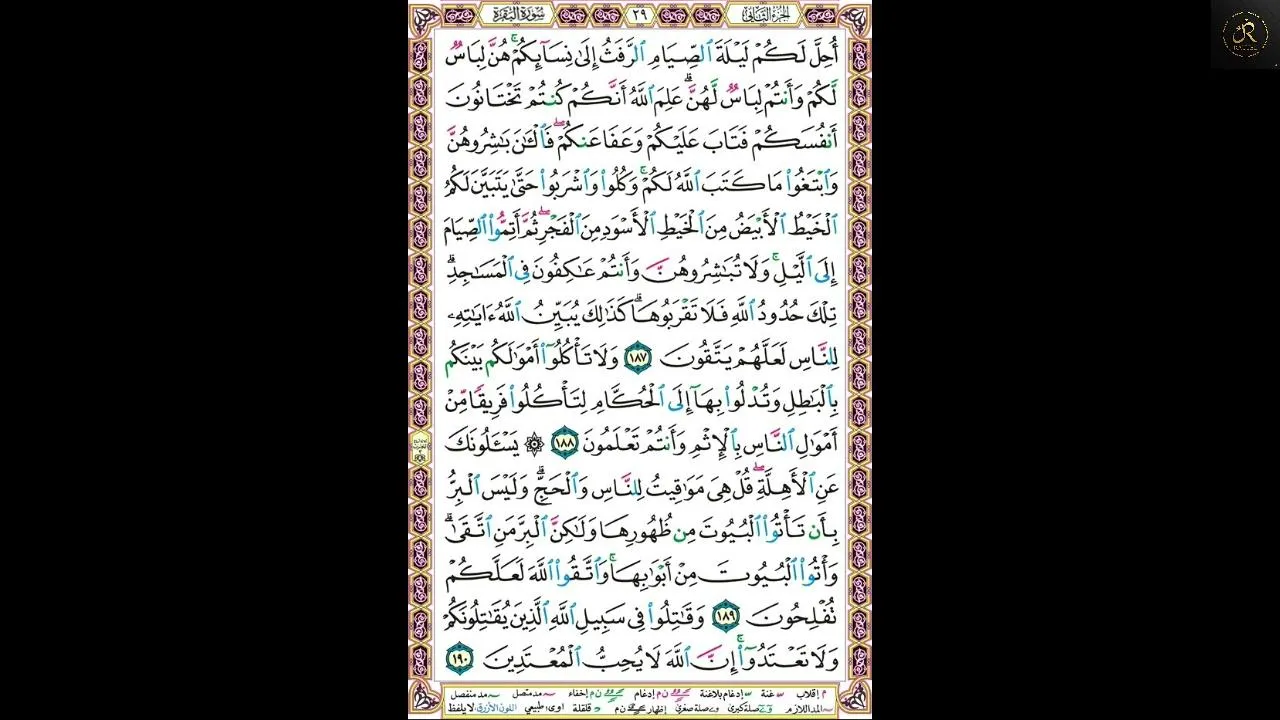 الجزء الثاني ٢٩ سورة البقرة
أُحِلَّ لَكُمْ لَيْلَةَ ٱلصِّيَامِ ٱلرَّفَثُ إِلَىٰ نِسَآئِكُمْ ۚ هُنَّ لِبَاسٌ
لَّكُمْ وَأَنتُمْ لِبَاسٌ لَّهُنَّ ۗ عَلِمَ ٱللَّهُ أَنَّكُمْ كُنتُمْ تَخْتَانُونَ
أَنفُسَكُمْ فَتَابَ عَلَيْكُمْ وَعَفَا عَنكُمْ ۖ فَٱلْـَٰٔنَ بَـٰشِرُوهُنَّ
وَٱبْتَغُوا۟ مَا كَتَبَ ٱللَّهُ لَكُمْ ۚ وَكُلُوا۟ وَٱشْرَبُوا۟ حَتَّىٰ يَتَبَيَّنَ لَكُمُ
ٱلْخَيْطُ ٱلْأَبْيَضُ مِنَ ٱلْخَيْطِ ٱلْأَسْوَدِ مِنَ ٱلْفَجْرِ ۖ ثُمَّ أَتِمُّوا۟ ٱلصِّيَامَ
إِلَى ٱلَّيْلِ ۚ وَلَا تُبَـٰشِرُوهُنَّ وَأَنتُمْ عَـٰكِفُونَ فِى ٱلْمَسَـٰجِدِ ۗ
تِلْكَ حُدُودُ ٱللَّهِ فَلَا تَقْرَبُوهَا ۗ كَذَٰلِكَ يُبَيِّنُ ٱللَّهُ ءَايَـٰتِهِۦ
لِلنَّاسِ لَعَلَّهُمْ يَتَّقُونَ ١٨٧ وَلَا تَأْكُلُوٓا۟ أَمْوَٰلَكُم بَيْنَكُم
بِٱلْبَـٰطِلِ وَتُدْلُوا۟ بِهَآ إِلَى ٱلْحُكَّامِ لِتَأْكُلُوا۟ فَرِيقًا مِّنْ
أَمْوَٰلِ ٱلنَّاسِ بِٱلْإِثْمِ وَأَنتُمْ تَعْلَمُونَ ١٨٨ ۞ يَسْـَٔلُونَكَ
عَنِ ٱلْأَهِلَّةِ ۖ قُلْ هِىَ مَوَٰقِيتُ لِلنَّاسِ وَٱلْحَجِّ ۗ وَلَيْسَ ٱلْبِرُّ
بِأَن تَأْتُوا۟ ٱلْبُيُوتَ مِن ظُهُورِهَا وَلَـٰكِنَّ ٱلْبِرَّ مَنِ ٱتَّقَىٰ ۗ
وَأْتُوا۟ ٱلْبُيُوتَ مِنْ أَبْوَٰبِهَا ۚ وَٱتَّقُوا۟ ٱللَّهَ لَعَلَّكُمْ
تُفْلِحُونَ ١٨٩ وَقَـٰتِلُوا۟ فِى سَبِيلِ ٱللَّهِ ٱلَّذِينَ يُقَـٰتِلُونَكُمْ
وَلَا تَعْتَدُوٓا۟ ۚ إِنَّ ٱللَّهَ لَا يُحِبُّ ٱلْمُعْتَدِينَ ١٩٠
م إقلاب غنة إدغام بلاغنة ن م إدغام ن م إخفاء مد متصل مد منفصل
المد اللازم صلة كبرى صلة صغرى إظهار ن م قلقلة اوى: طبيعي اللون الأزرق: لا يلفظ